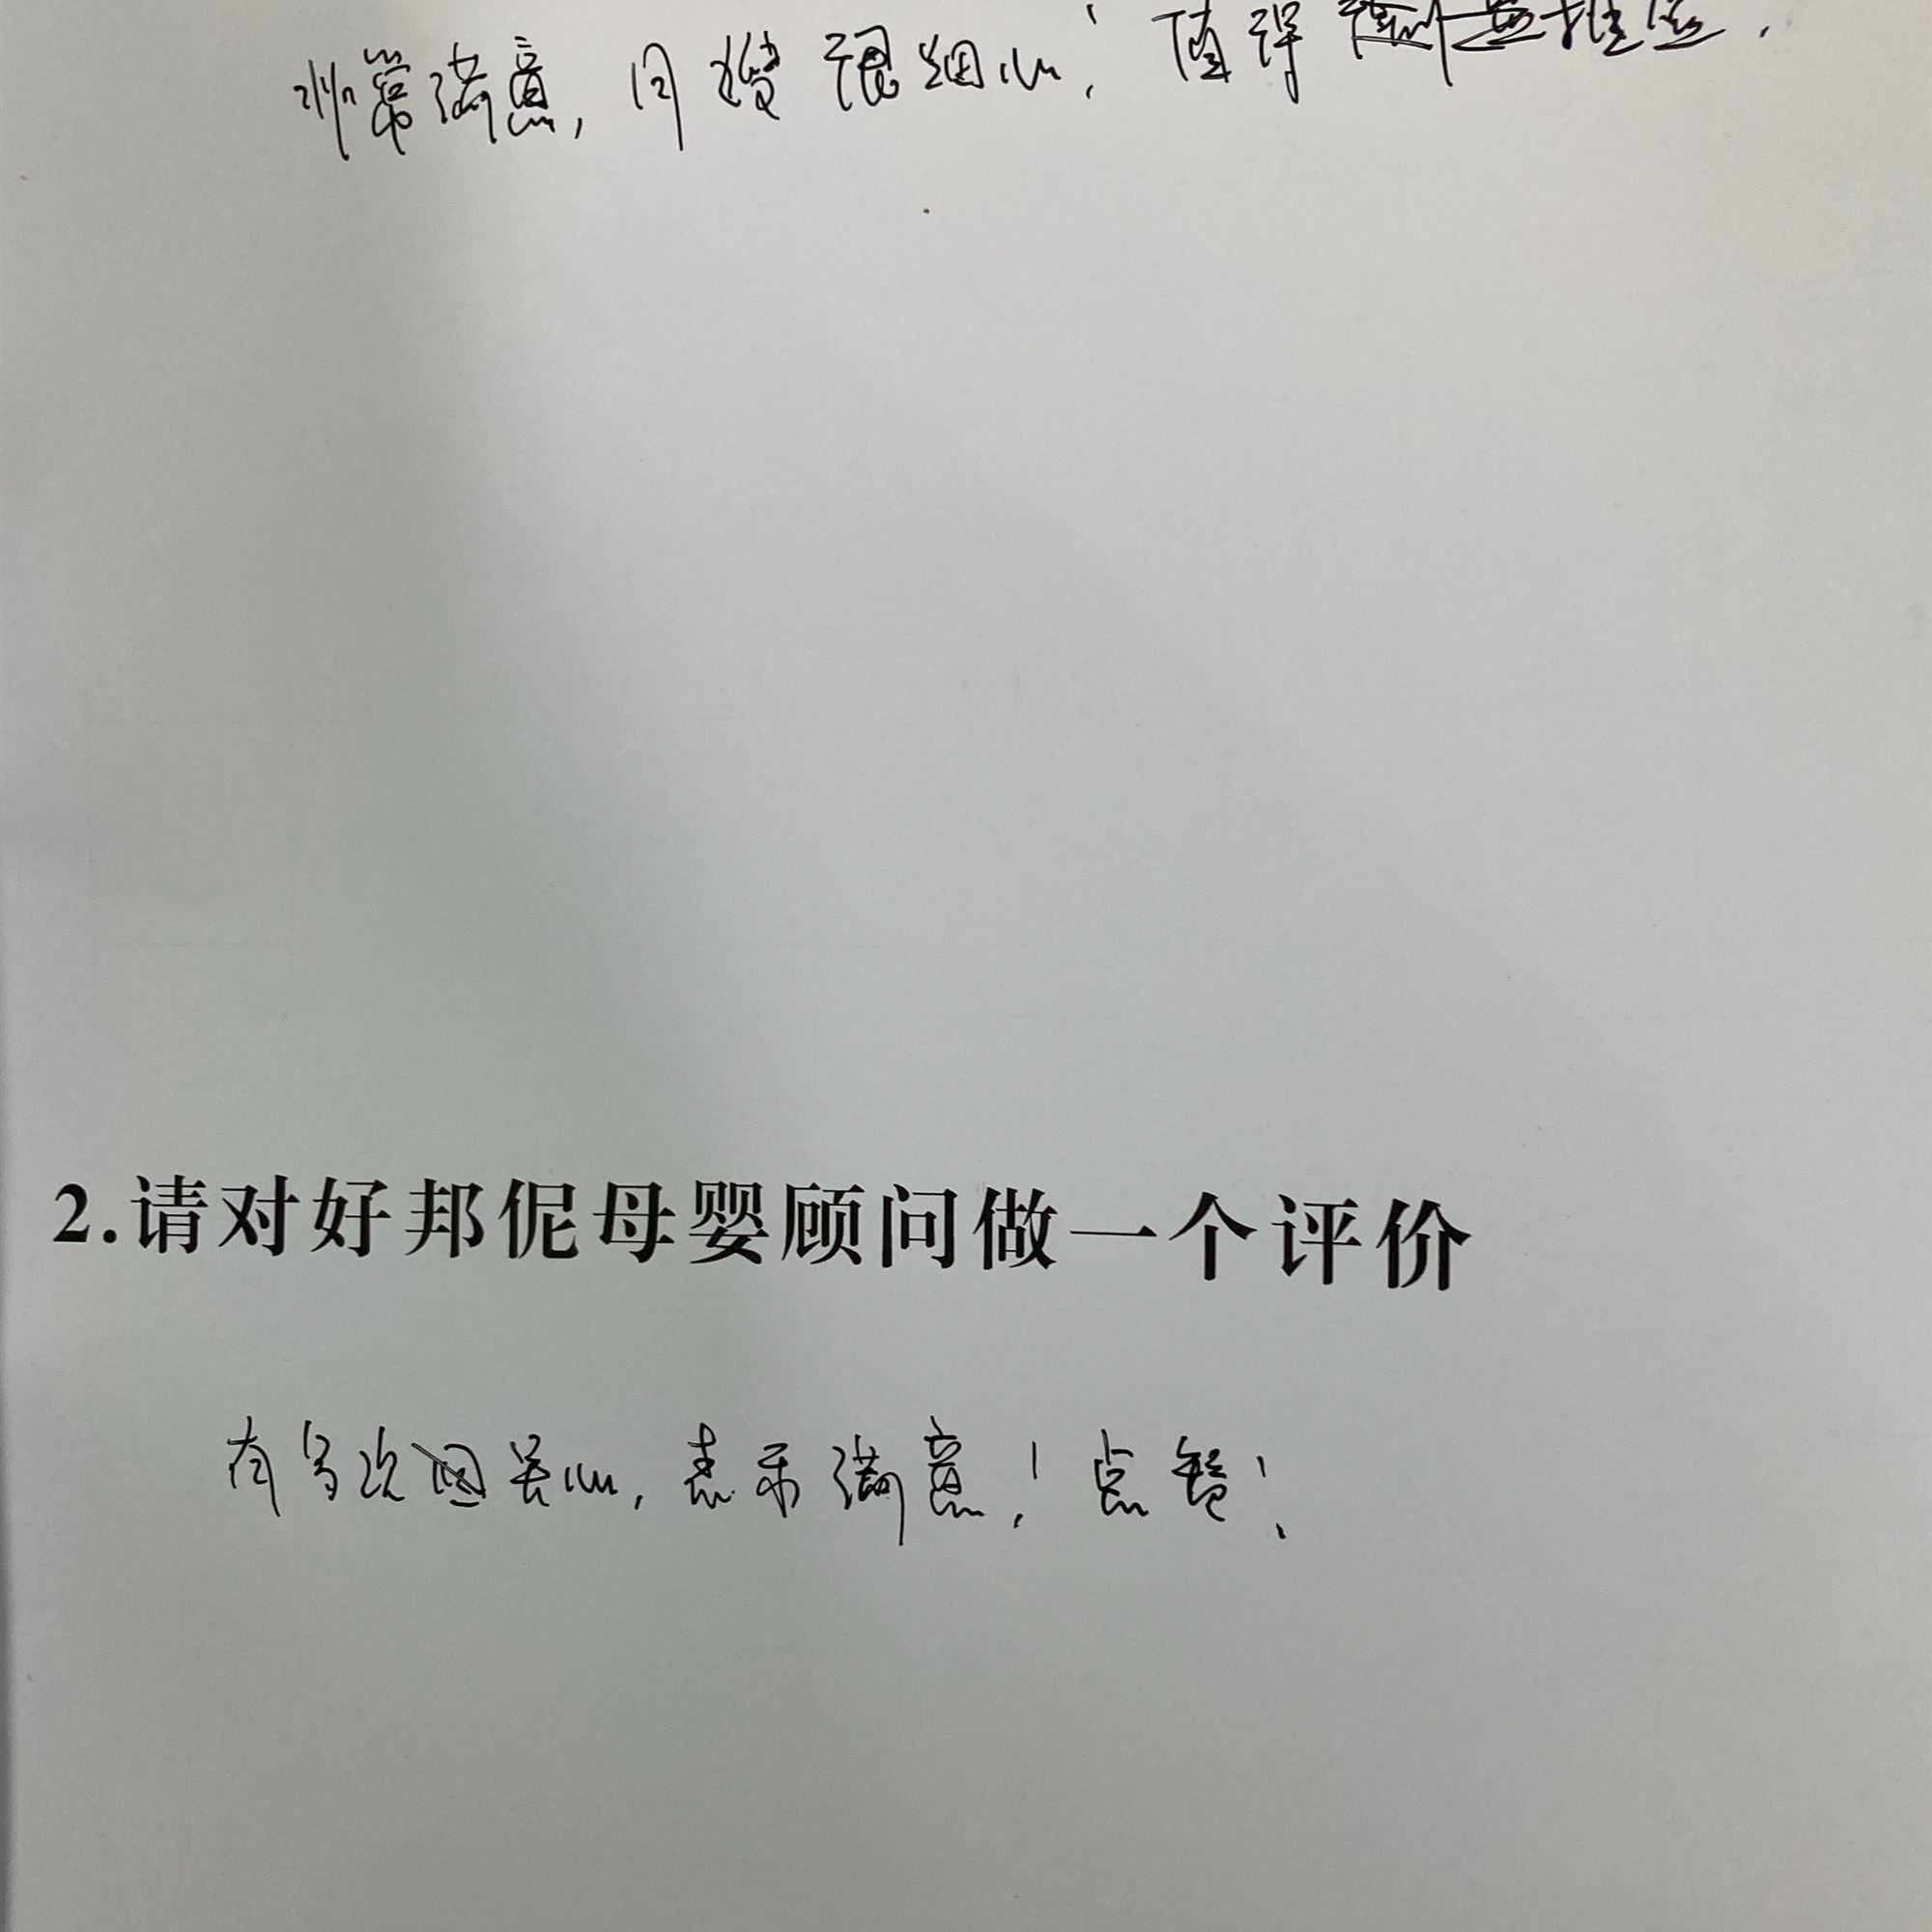 非常满意，月嫂很细心！值得推
2.请对好邦伲母婴顾问做一个评价
有多次关心，表示满意！点赞！